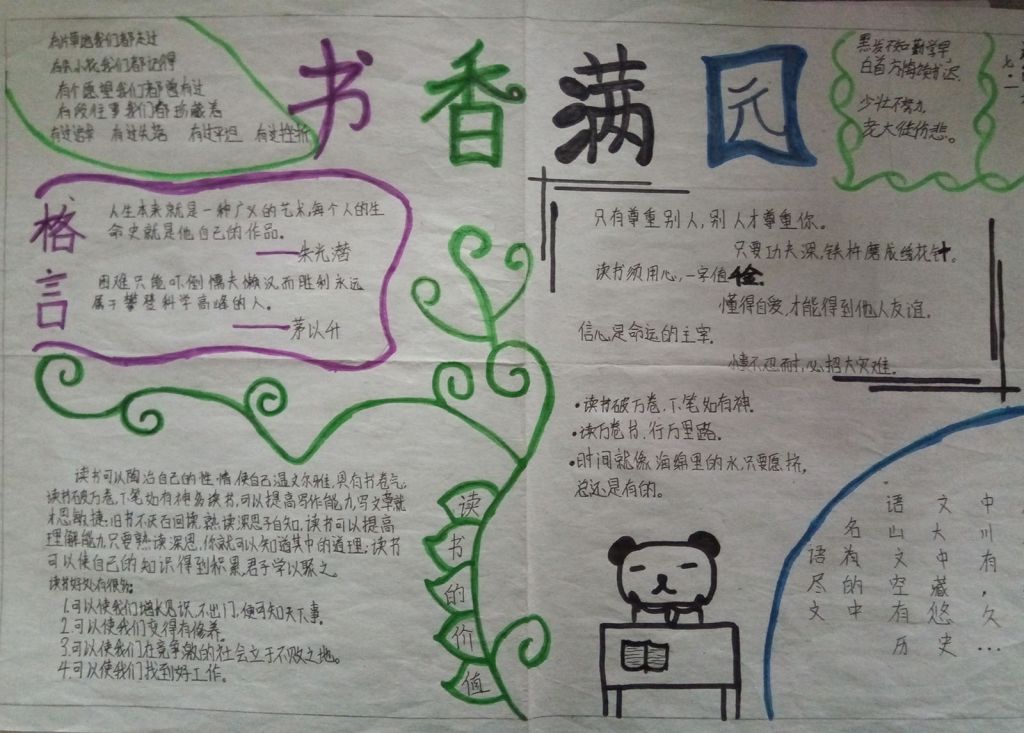 书香满园
有片草地我们都走过
有条小路我们都记得
有个愿望我们都曾有过
有段往事我们都珍藏着
有过语幸 有过失落 有过平坦 有过挫折
黑发不知勤学早
白首方悔读书迟
少壮不努力
老大徒伤悲。
格言
人生本来就是一种广义的艺术,每个人的生
命史就是他自己的作品。
——朱光潜
困难只能吓倒懦夫懒汉,而胜利永远
属于攀登科学高峰的人。
——茅以升
只有尊重别人,别人才尊重你。
只要功夫深,铁杵磨成绣花针。
读书须用心,一字值千金.
懂得自爱,才能得到他人友谊.
信心是命运的主宰.
情不忍耐,必招大灾难.
·读书破万卷,下笔如有神.
·读万卷书,行万里路.
·时间就像海绵里的水,只要愿挤,
总还是有的.
读书可以陶冶自己的性情,使自己温文尔雅,具有书卷气;
读书破万卷,下笔如有神,多读书,可以提高写作能力,写文章就
才思敏捷;旧书不厌百回读,熟读深思子自知,读书可以提高
理解能力,只要熟读深思,你就可以知道其中的道理;读书
可以使自己的知识得到积累,君子学以聚之.
读书好处有很多:
1.可以使我们增长见识,不出门,便可知天下事.
2.可以使我们变得有修养.
3.可以使我们在竞争激的社会立于不败之地。
4.可以使我们找到好工作.
读书的价值
语文中
名山大川
语文中有
尽的空藏,
文中有悠久
历史...